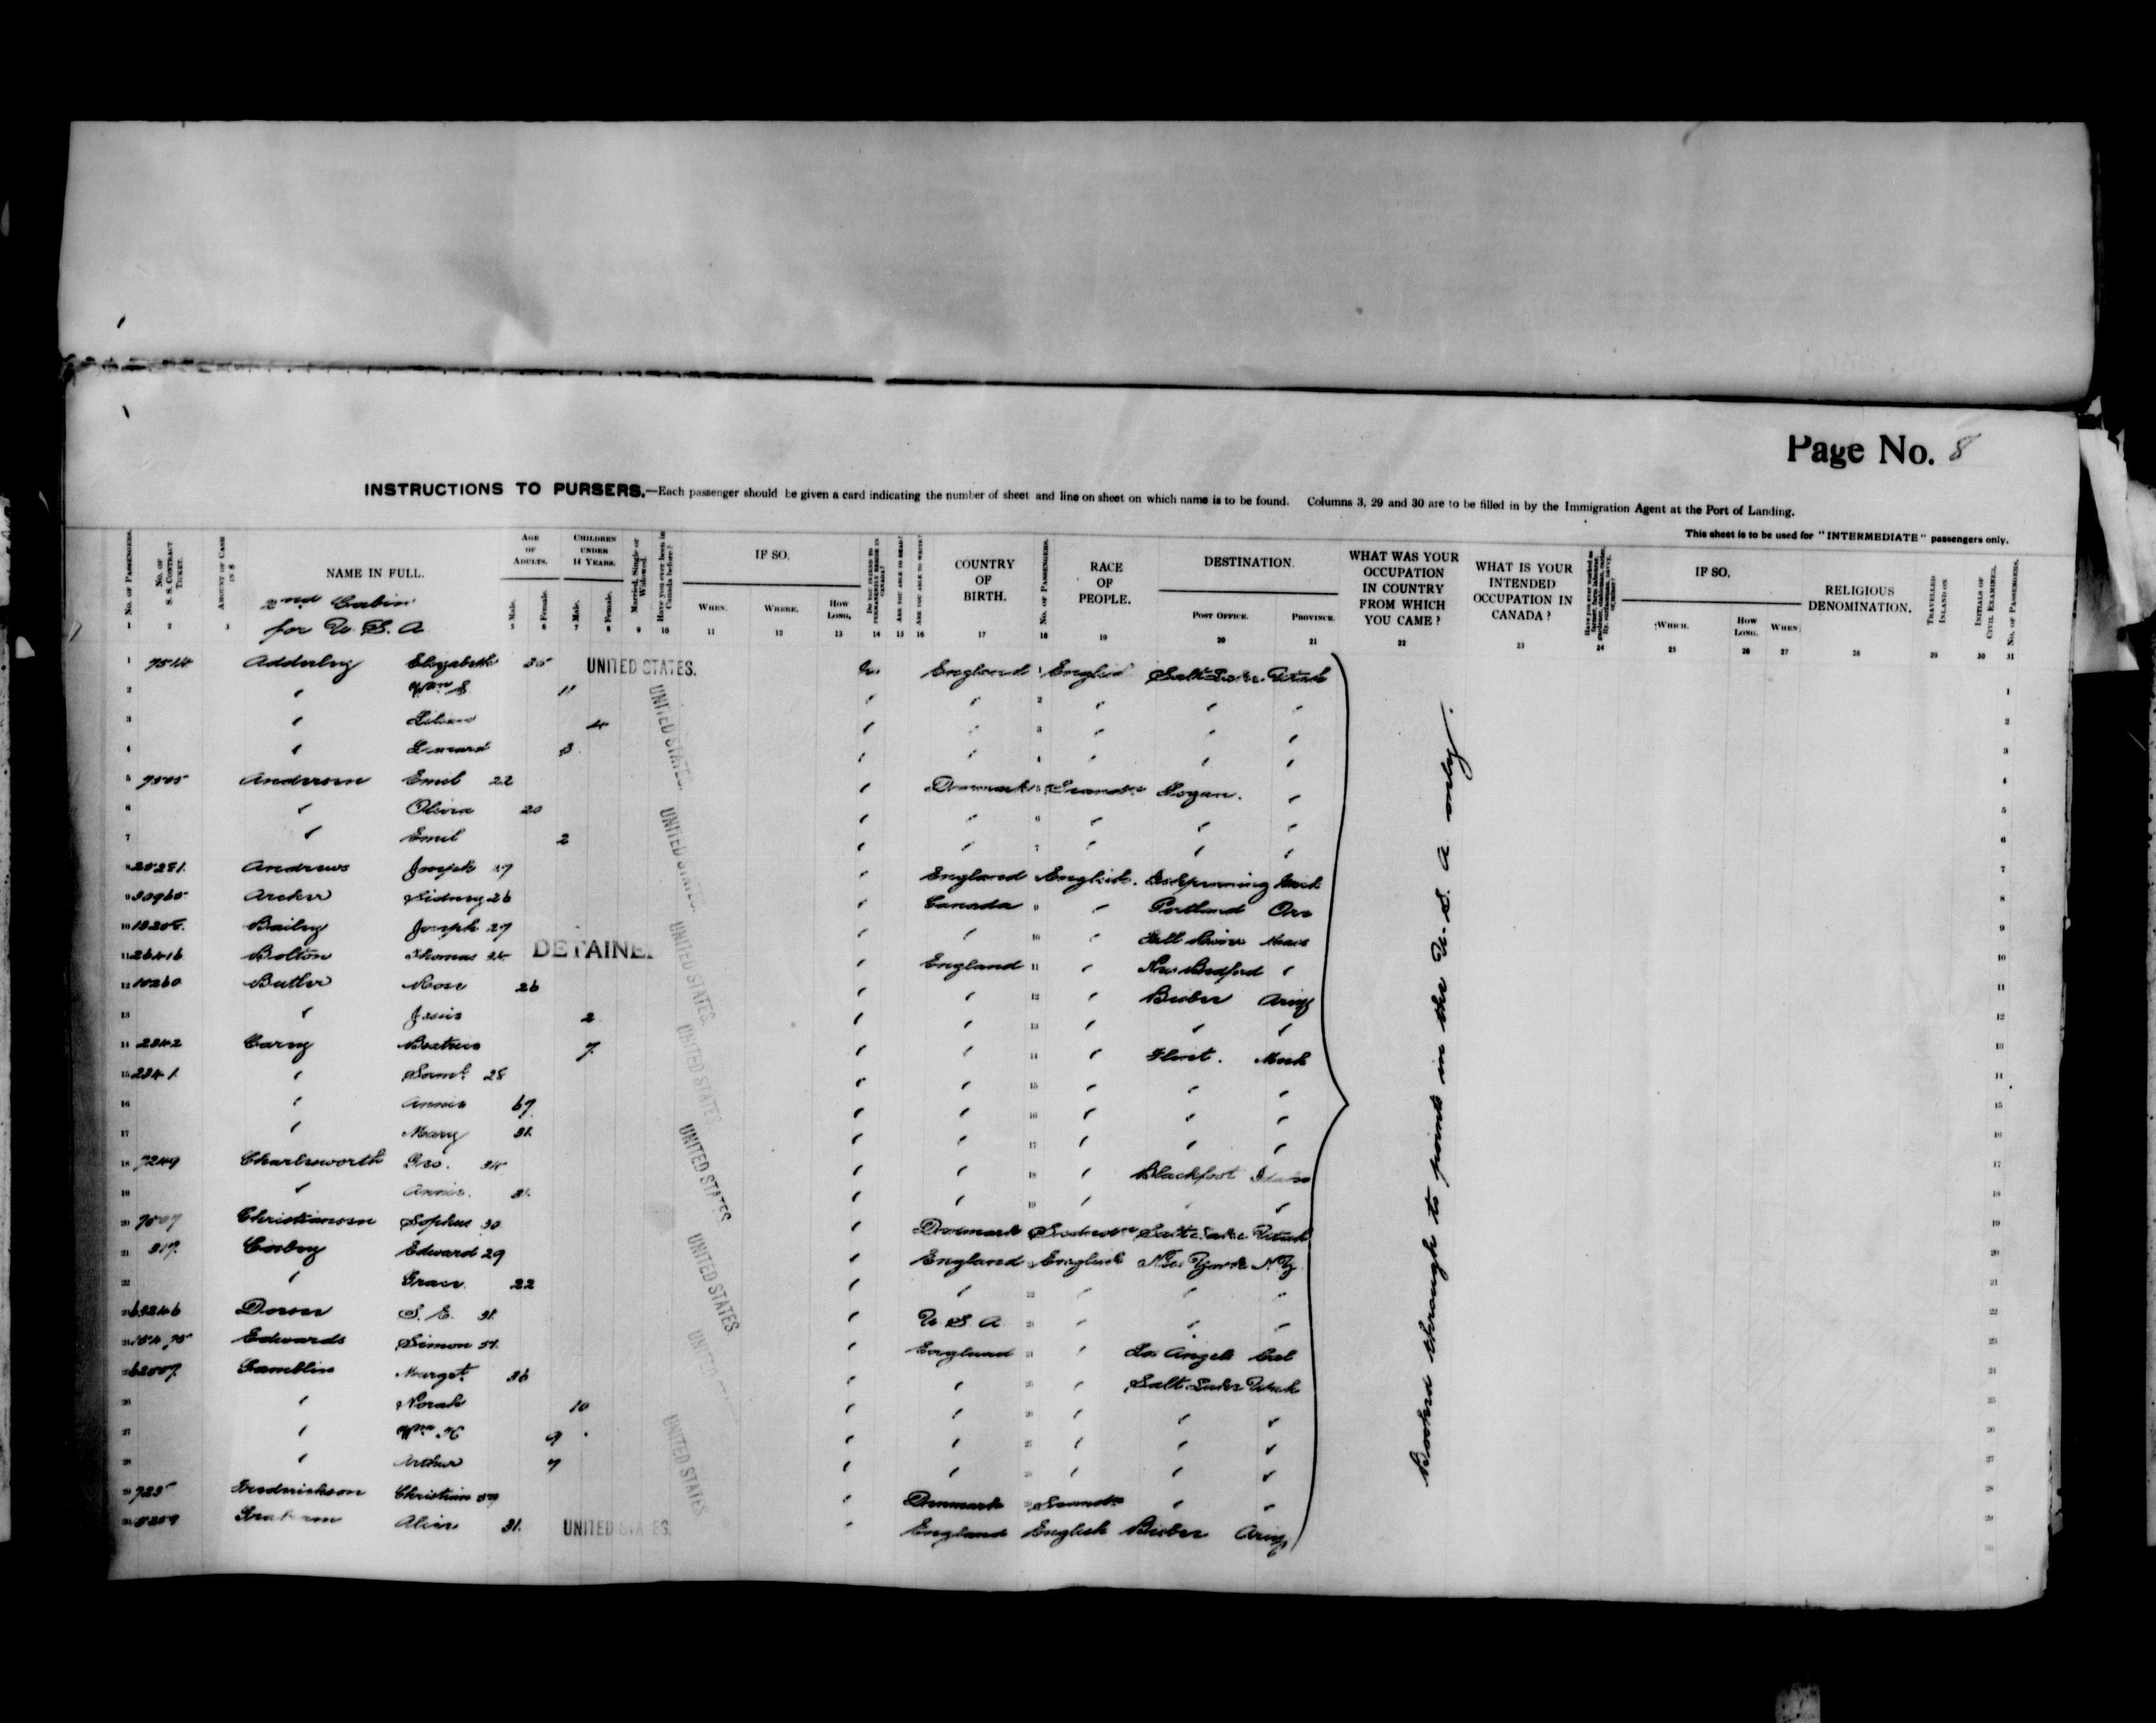 Page No. 8
INSTRUCTIONS TO PURSERS.—Each passenger should be given a card indicating the number of sheet and line on sheet on which name is to be found. Columns 3, 29 and 30 are to be filled in by the Immigration Agent at the Port of Landing.
This sheet is to be used for "INTERMEDIATE" passengers only.
No. of Passengers. No. of S. S. Contract Ticket. Amount of Cash in $ NAME IN FULL. Age of Adults. Children under 14 Years. Married, Single or Widowed. Have you ever been in Canada before? IF SO. Do you intend to permanently reside in Canada? Are you able to read? Are you able to write? COUNTRY OF BIRTH. No. of Passengers. RACE OF PEOPLE. DESTINATION. WHAT WAS YOUR OCCUPATION IN COUNTRY FROM WHICH YOU CAME? WHAT IS YOUR INTENDED OCCUPATION IN CANADA? IF SO, RELIGIOUS DENOMINATION. Travelled Inland on Initials of Civil Examiner. No. of Passengers.
Male. Female. Male. Female. When. Where. How Long, Post Office. Province. Which. How Long. When
2nd Cabin
for U. S. A.
1 2 3 5 6 7 8 9 10 11 12 13 14 15 16 17 18 19 20 21 22 23 24 25 26 27 28 29 30 31
1 7514 Adderley Elizabeth 35 UNITED STATES. England 1 English Salt Lake Utah
2 " Wm S. 11 " " 2 " " " 1
3 " Lilian 4 " " 3 " " " 2
4 " Leonard 3 " " 4 " " " 3
5 7505 Anderson Emil 22 " Denmark 5 Scandn Logan. " 4
6 " Olivia 20 " " 6 " " " 5
7 " Emil 2 " " 7 " " " 6
8 Andrews Joseph 27 " England English. Ishpeming Mich 7
9 30960 Archer Sidney 26 " Canada 9 " Portland Ore 8
10 Bailey Joseph 27 " " 10 " Fall River Mass 9
11 26416 Bolton Thomas 24 DETAINED " England 11 " New Bedford " 10
12 10260 Butler Rose 26 " " 12 " Bisbee Ariz 11
13 " Jessie 2 " " 13 " " " 12
14 2342 Carey Beatrice 7 " " 14 " Flint. Mich 13
15 2341 " Saml. 28 " " 15 " " " 14
16 " Annie 67 " " 16 " " " 15
17 " Mary 31 " " 17 " " " 16
18 7249 Charlesworth Geo. 34 " " 18 " Blackfoot Idaho 17
19 " Annie. 31 " " 19 " " " 18
20 7507 Christianson Sophus 30 " Denmark Scandn Salt Lake Utah 19
21 317 Cosbey Edward 29 " England English New York N.Y. 20
22 " Grace 22 " " 22 " " " 21
23 63246 Dorser S. E. 31 " U. S. A. 23 " " " 22
24 Edwards Simon 51 " England 24 " Los Angeles Cal 23
25 62007 Gamblin Margt. 36 " " 25 " Salt Lake Utah 24
26 " Norah 10 " " 26 " " " 25
27 " Wm. H 9 " " 27 " " " 26
28 " Arthur 7 " " 28 " " " 27
29 7235 Fredrickson Christian 59 " Denmark 29 Scandn " " 28
30 Graham Alice 31 UNITED STATES. " England English Bisbee Ariz 29
30
UNITED STATES.
UNITED STATES.
UNITED STATES.
UNITED STATES
UNITED STATES
UNITED STATES.
UNITED
UNITED STATES
Booked through to points in the U. S. A. only.